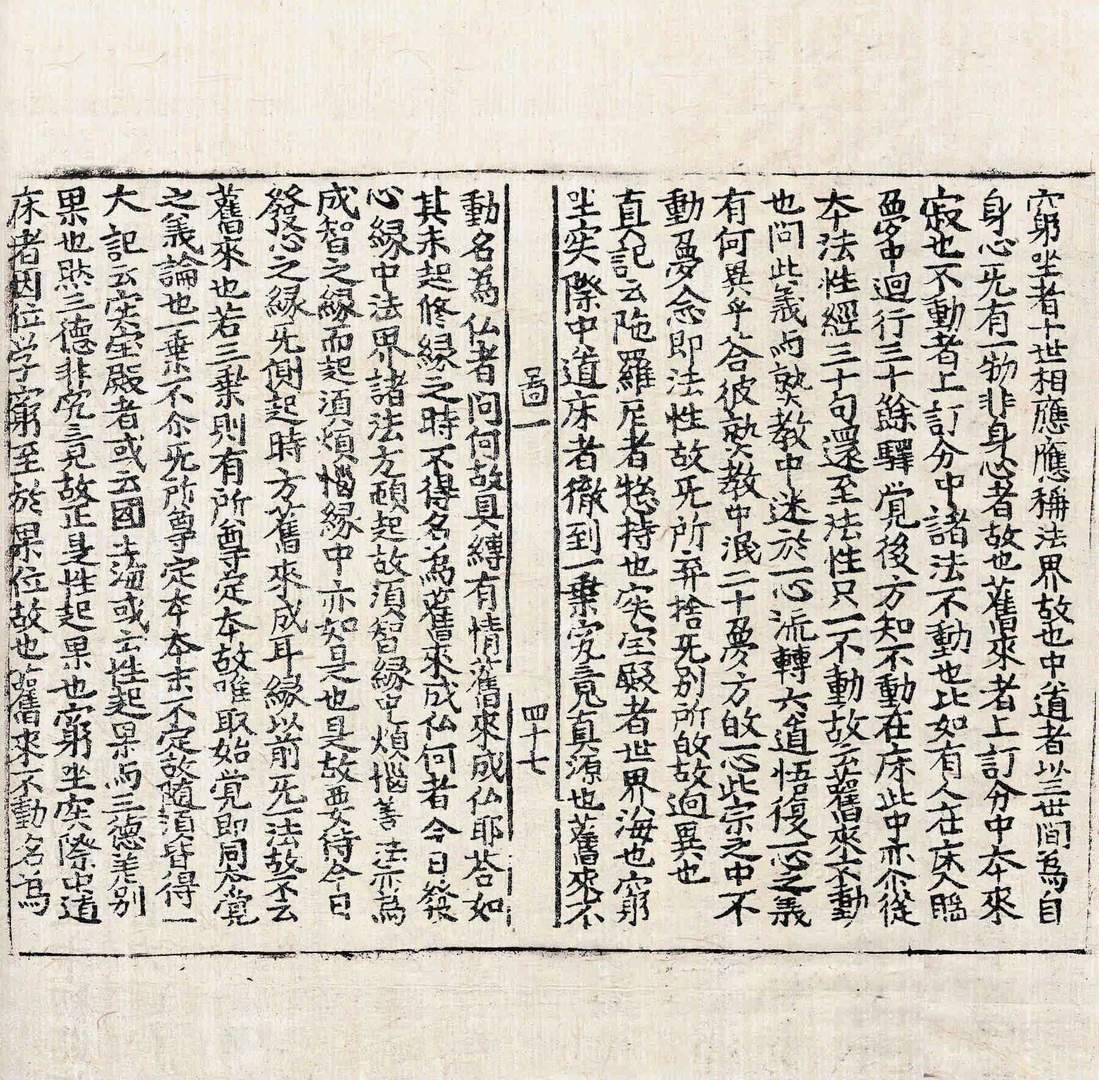 窮坐者十世相應應稱法界故也中道者以三世間爲自
身心旡有一物非身心者故也舊來者上訂分中夲來
寂也不動者上訂分中諸法不動也比如有人在床入睡
夢中迴行三十餘驛覚後方知不動在床此中亦尒從
夲法性經三十句還至法性只一不動故云舊來不動
也問此義与熟教中迷於一心流轉六道悟復一心之義
有何異乎荅彼熟教中泯二十夢方的一心此宗之中不
動夢念即法性故旡所弃捨旡別所的故逈異也
真記云陁羅尼者惣持也实宝殿者世界海也窮
坐实際中道床者徹到一乗究竟真源也舊來不
啚一　四十七
動名爲仏者問何故具縛有情舊來成仏耶荅如
其未起修縁之時不得名爲舊來成仏何者今日發
心縁中法界諸法方頓起故須智縁中煩惱善法亦爲
成智之縁而起須煩惱縁中亦如是也是故要待今日
發心之縁旡側起時方舊來成耳縁以前旡一法故不云
舊來也若三乗則有所尊定夲故唯取始覚即同夲覚
之義論也一乗不尒旡所尊定夲夲末不定故随須皆得一
大記云实宝殿者或云國土海或云性起果与三德差別
果也然三德非究竟故正是性起果也窮坐实際中道
床者因位学窮至於果位故也舊來不動名爲